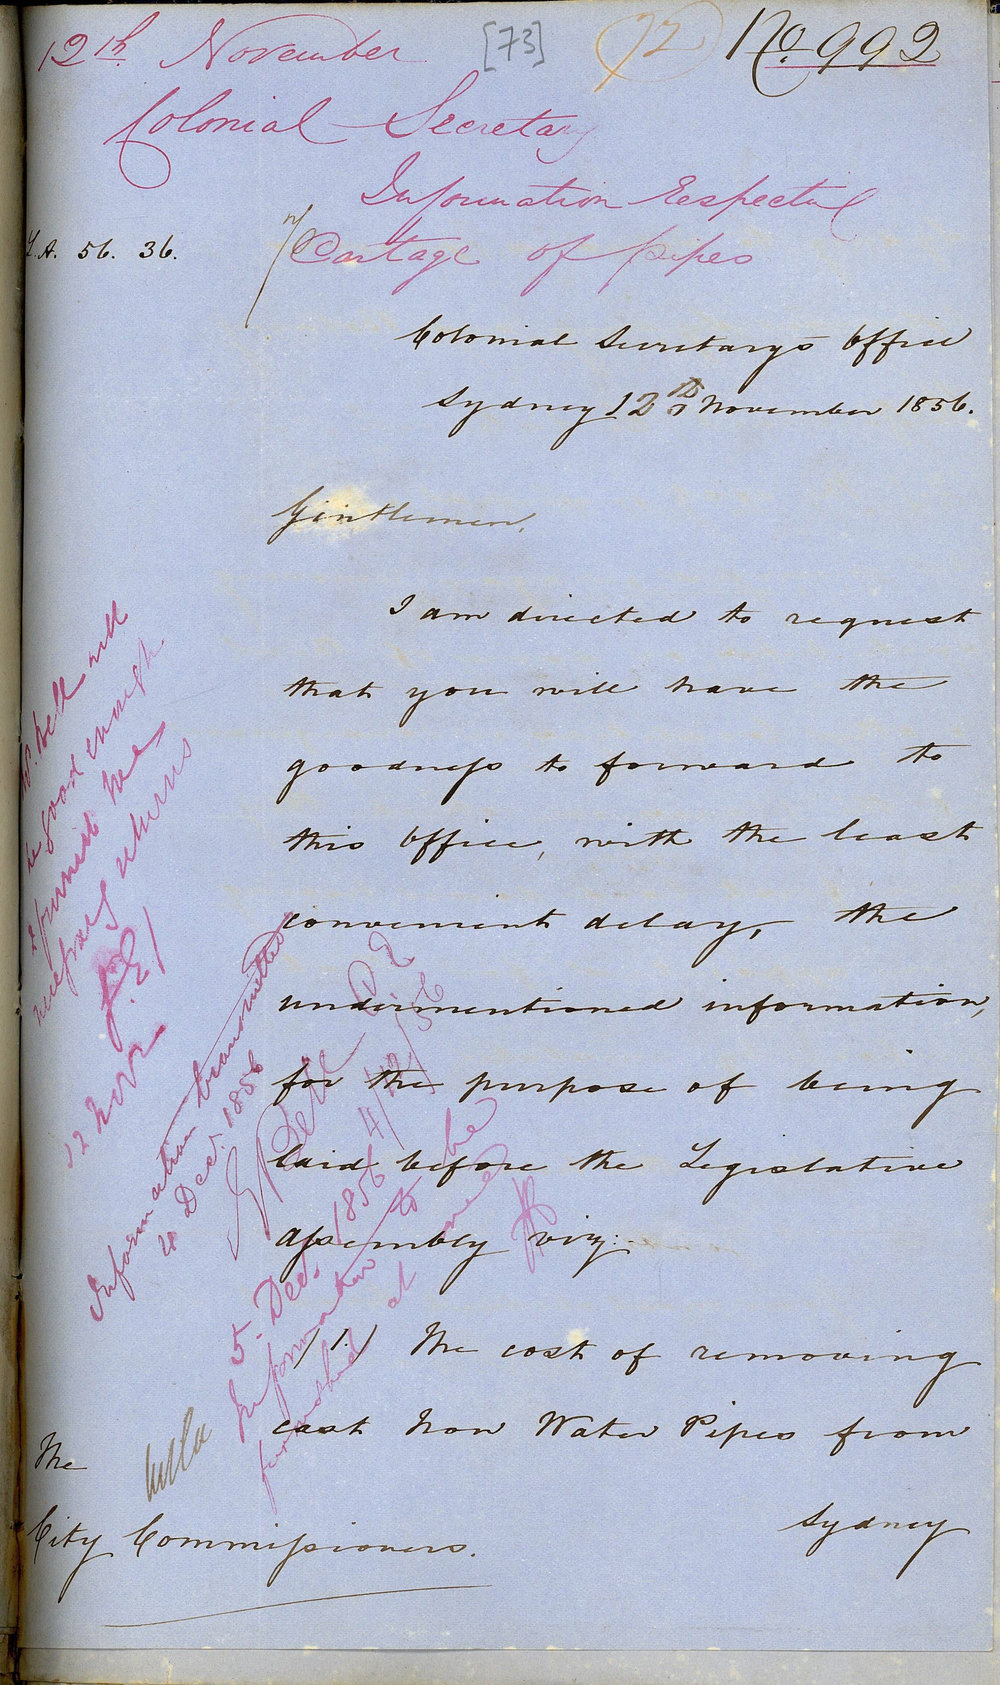 12th November [73] 72 No. 992
Colonial Secretary
Information Respectful
Cartage of pipes
L.A. 56. 36.
Colonial Secretary's Office
Sydney 12th November 1856.
Gentlemen,
I am directed to request
that you will have the
goodness to forward to
this Office, with the least
convenient delay, the
undermentioned information,
for the purpose of being
laid before the Legislative
Assembly viz:-
(1.) The cost of removing
cast Iron Water Pipes from
Sydney
The
City Commissioners.
Mr. Bell will
be good enough
to furnish the
necessary returns
12 Novr
Information transmitted
4 Decr. 1856
Bell C E
4/12/56
5. Dec. 1856
Information to be
furnished at once